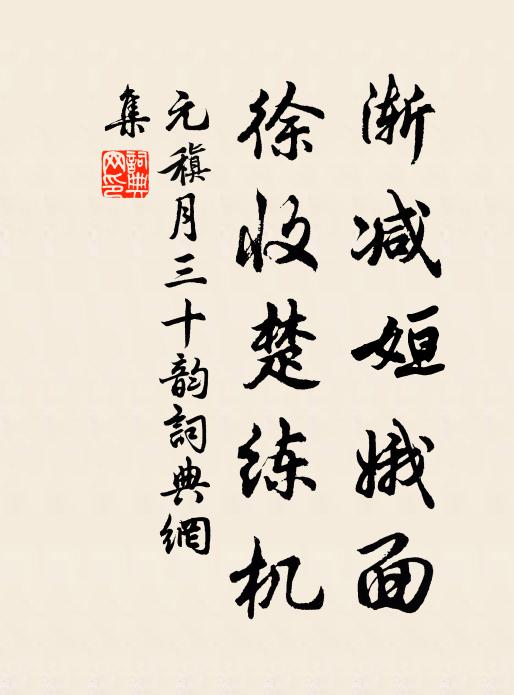 渐减姮娥面
徐收楚练机
元稹月三十韵詞典網
集
詞典
网印